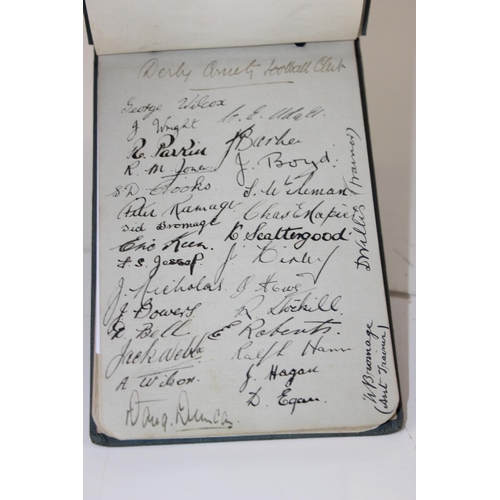 Derby County Football Club
George Wilcox
J Wright
R. Parkin
R. M. Jones
S D. Crooks
Peter Ramage
Sid Bromage
Eric Keen
F S. Jessop
J. Nicholas
J Bowers
E Bell
Jack Webb
A Wilson.
Doug. Duncan.
W. E. Udall.
J Barker
J. Boyd.
Chas E Napier
E Scattergood
J. Kirby
D Howe
R Stockill
E Roberts.
Ralph Hann
J. Hagan
D. Egan.
D Willis (Trainer)
W Bromage
(Asst Trainer)